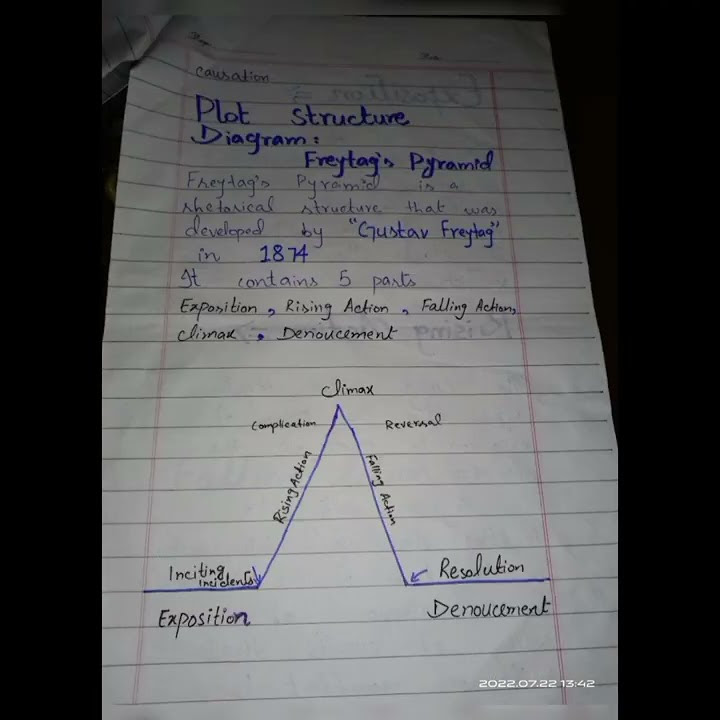 causation
Plot structure
Diagram:
Freytag's Pyramid
Freytag's Pyramid is a
rhetorical structure that was
developed by "Gustav Freytag"
in 1874
It contains 5 parts
Exposition, Rising Action, Falling Action,
climax, Denoucement
climax
Complication Reversal
Rising Action
Falling Action
Inciting
incidents
Resolution
Exposition
Denoucement
2022.07.22 13:42